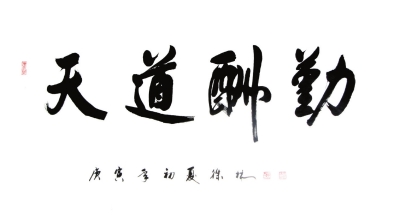 天道酬勤
庚寅年初夏徐